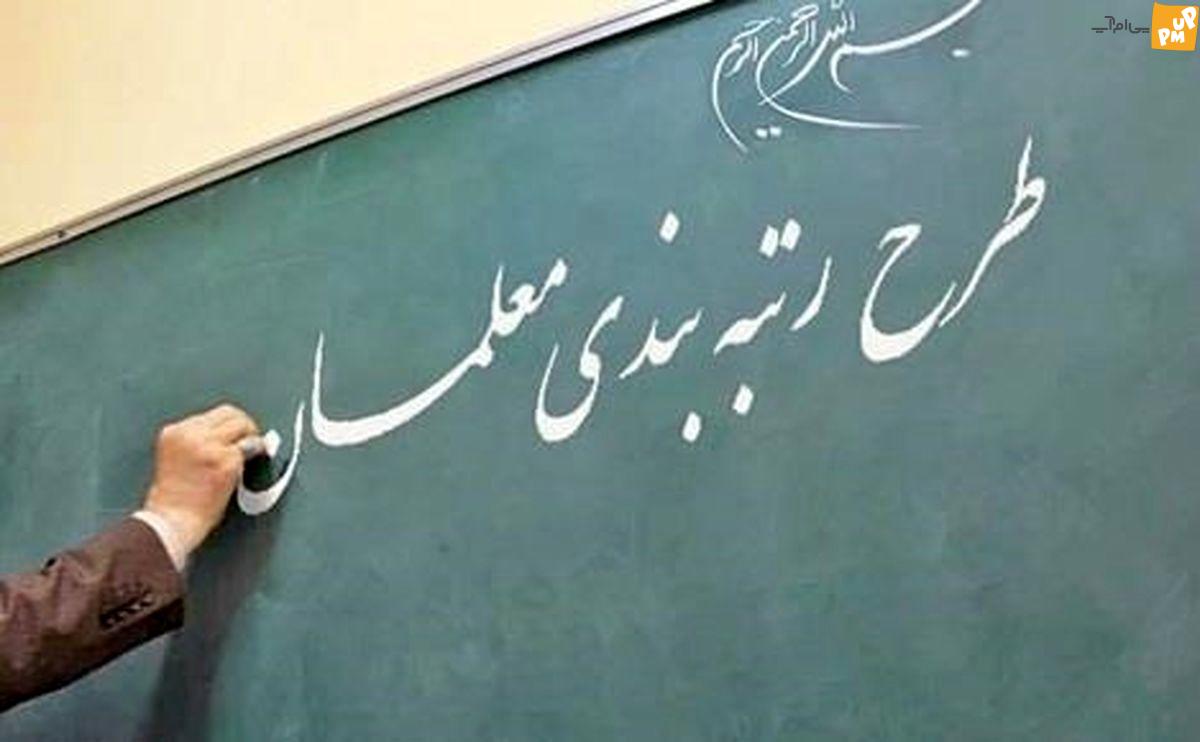 بسم الله الرحمن الرحیم
طرح رتبه بندی معلمان
پی‌ام‌آپ
PMUP